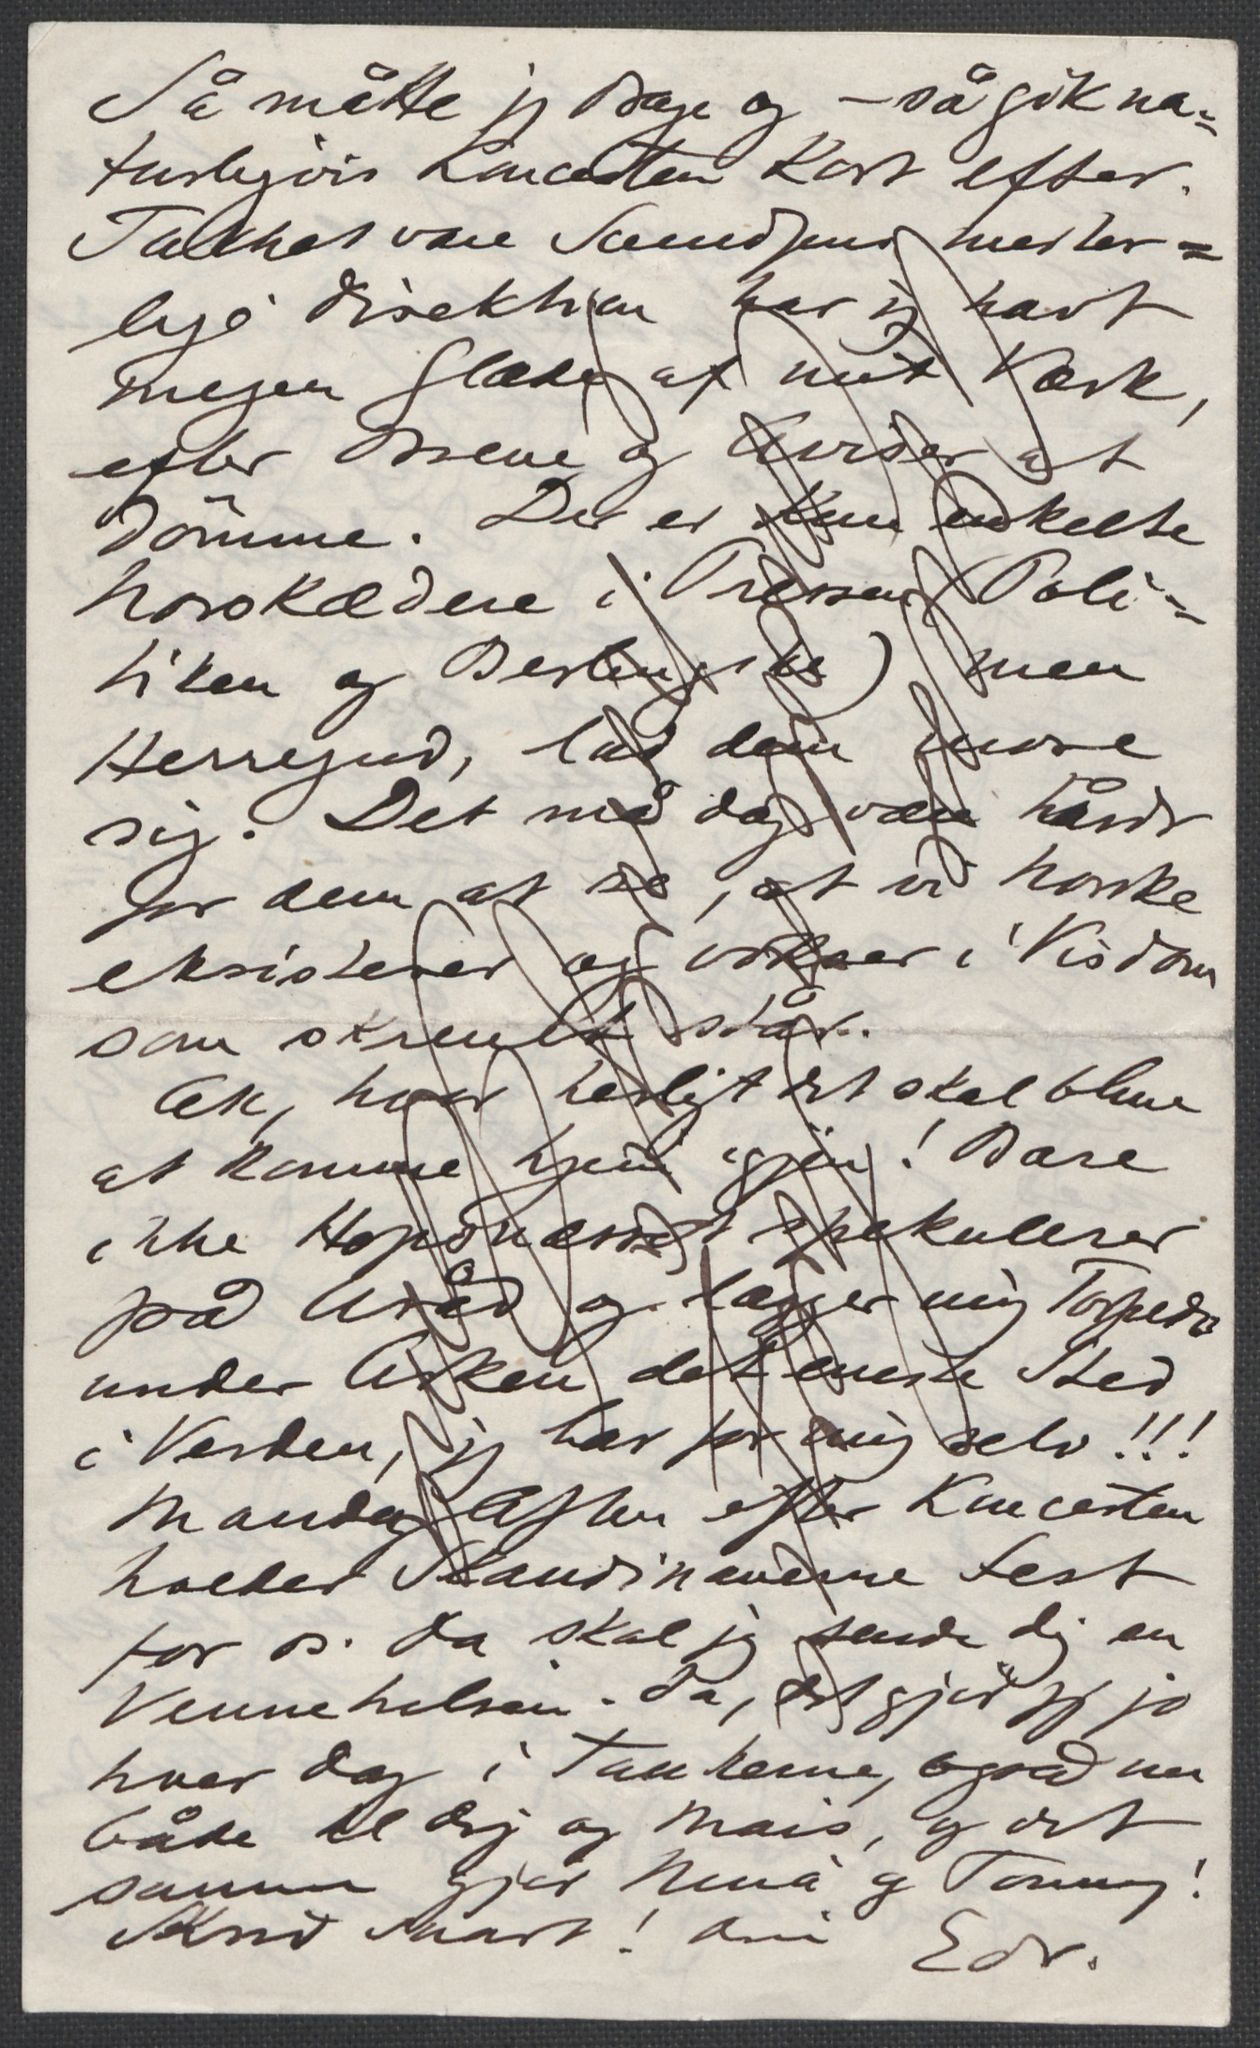 Så måtte jeg Dage og — så gik na-
turligvis Koncerten Kort efter.
Takket være Svendsens mester-
lige Direktion har jeg havt
megen Glæde af mit Værk,
efter Ørene og Aviser at
dömme. Der er kun enkelte
norskædere i Pressen (Poli-
tiken og Berlingske) men
Herregud, lad dem more
sig. Det må dog være hårdt
for dem at se, at vi norske
eksisterer og vokser i Visdom
som skrevet står.
Ak, hvor herligt det skal blive
at komme hjem igjen! Bare
ikke Hopsnæsset spekulerer
på Aråd og lægger mig Torpedo
under Arken det eneste Sted
i Verden, jeg har for mig selv!!!
Mandag Aften efter Koncerten
holder Skandinaverne Fest
for os. Da skal jeg sende dig en
Vennehilsen. Ja, det gjör jeg jo
hver Dag i Tankerne, også nu
både til dig og Mais, og det
samme gjør Nina og Tonny!
Skriv snart! Din Edv.